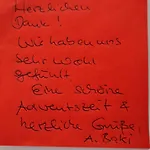 Herzlichen
Dank!
Wir haben uns
sehr wohl
gefühlt
Eine schöne
Adventszeit &
herzliche Grüße,
A.